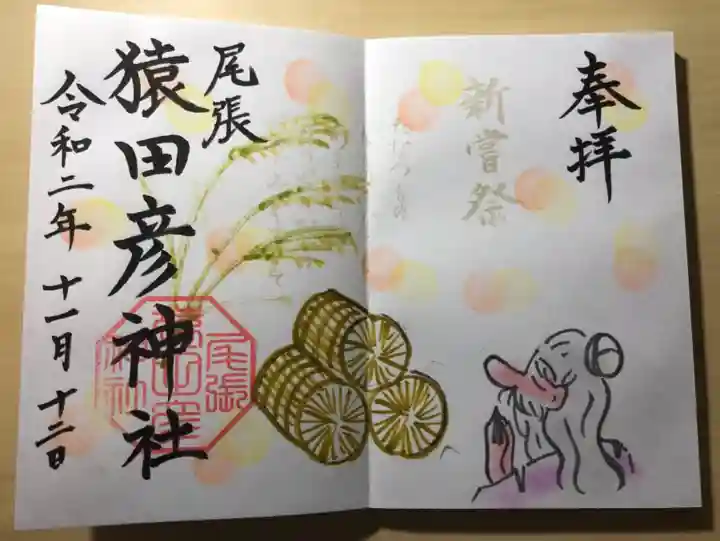 奉拝
新嘗祭
尾張
猿田彦神社
令和二年 十一月 十二日
尾張